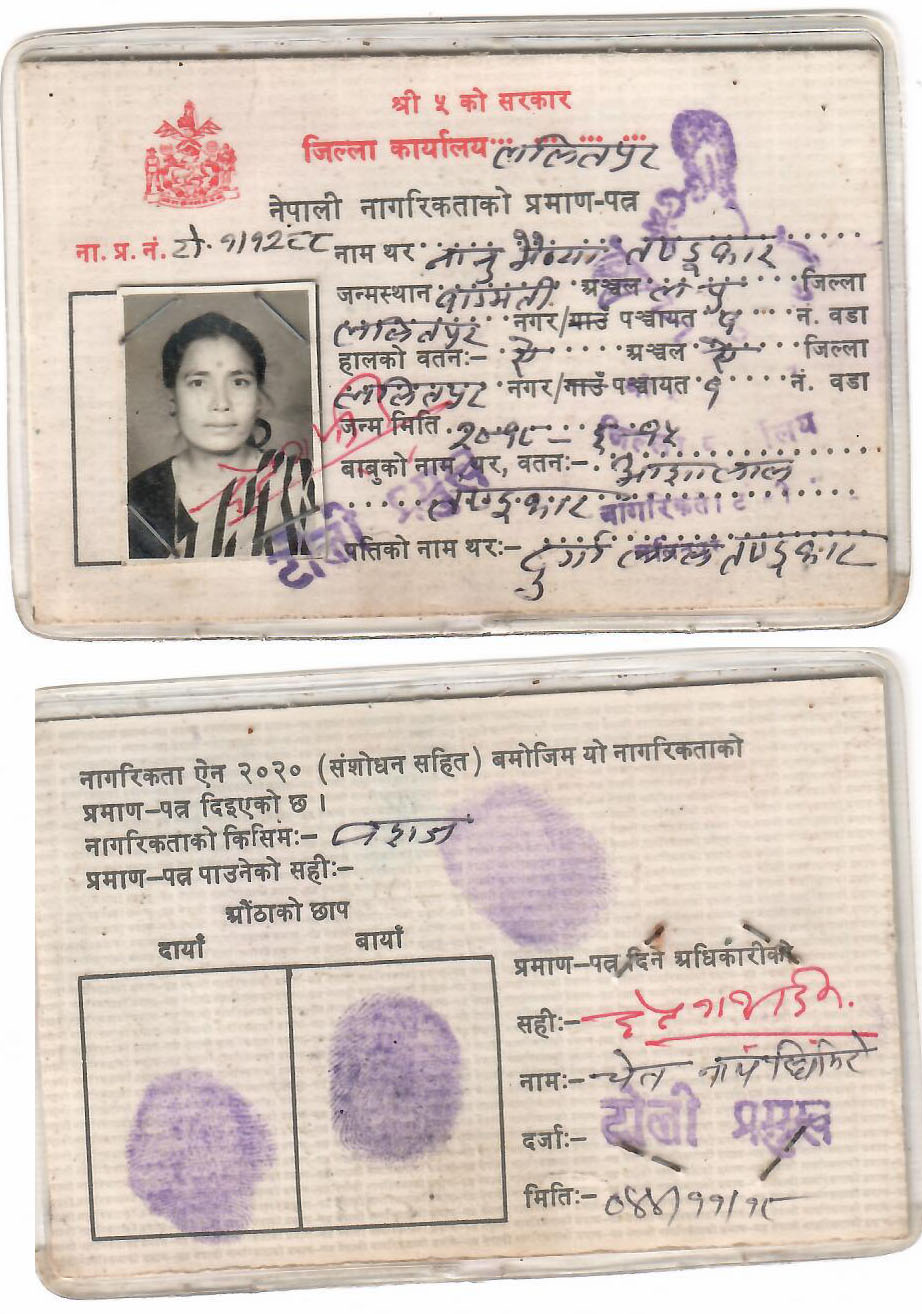 श्री ५ को सरकार
जिल्ला कार्यालय ललितपुर
नेपाली नागरिकताको प्रमाण-पत्र
ना. प्र. नं. टो. १/१२८८ नाम थर तण्डुकार
जन्मस्थान वाग्मती अञ्चल ल पु जिल्ला
ललितपुर नगर/गाउँ पञ्चायत नं. वडा
हालको वतन:- ऐ अञ्चल ऐ जिल्ला
ललितपुर नगर/गाउँ पञ्चायत नं. वडा
जन्म मिति २०१८ –
बाबुको नाम, थर, वतन:- आशालाल
तण्डुकार
पतिको नाम थर:- दुर्गा लाल तण्डुकार
टोली प्रमुख
नागरिकता ऐन २०२० (संशोधन सहित) बमोजिम यो नागरिकताको
प्रमाण-पत्र दिइएको छ ।
नागरिकताको किसिम:- वंशज
प्रमाण-पत्र पाउनेको सही:-
औंठाको छाप
दायाँ बायाँ
प्रमाण-पत्र दिने अधिकारीको
सही:-
नाम:-
दर्जा:- टोली प्रमुख
मिति:- ०४४/११/१८